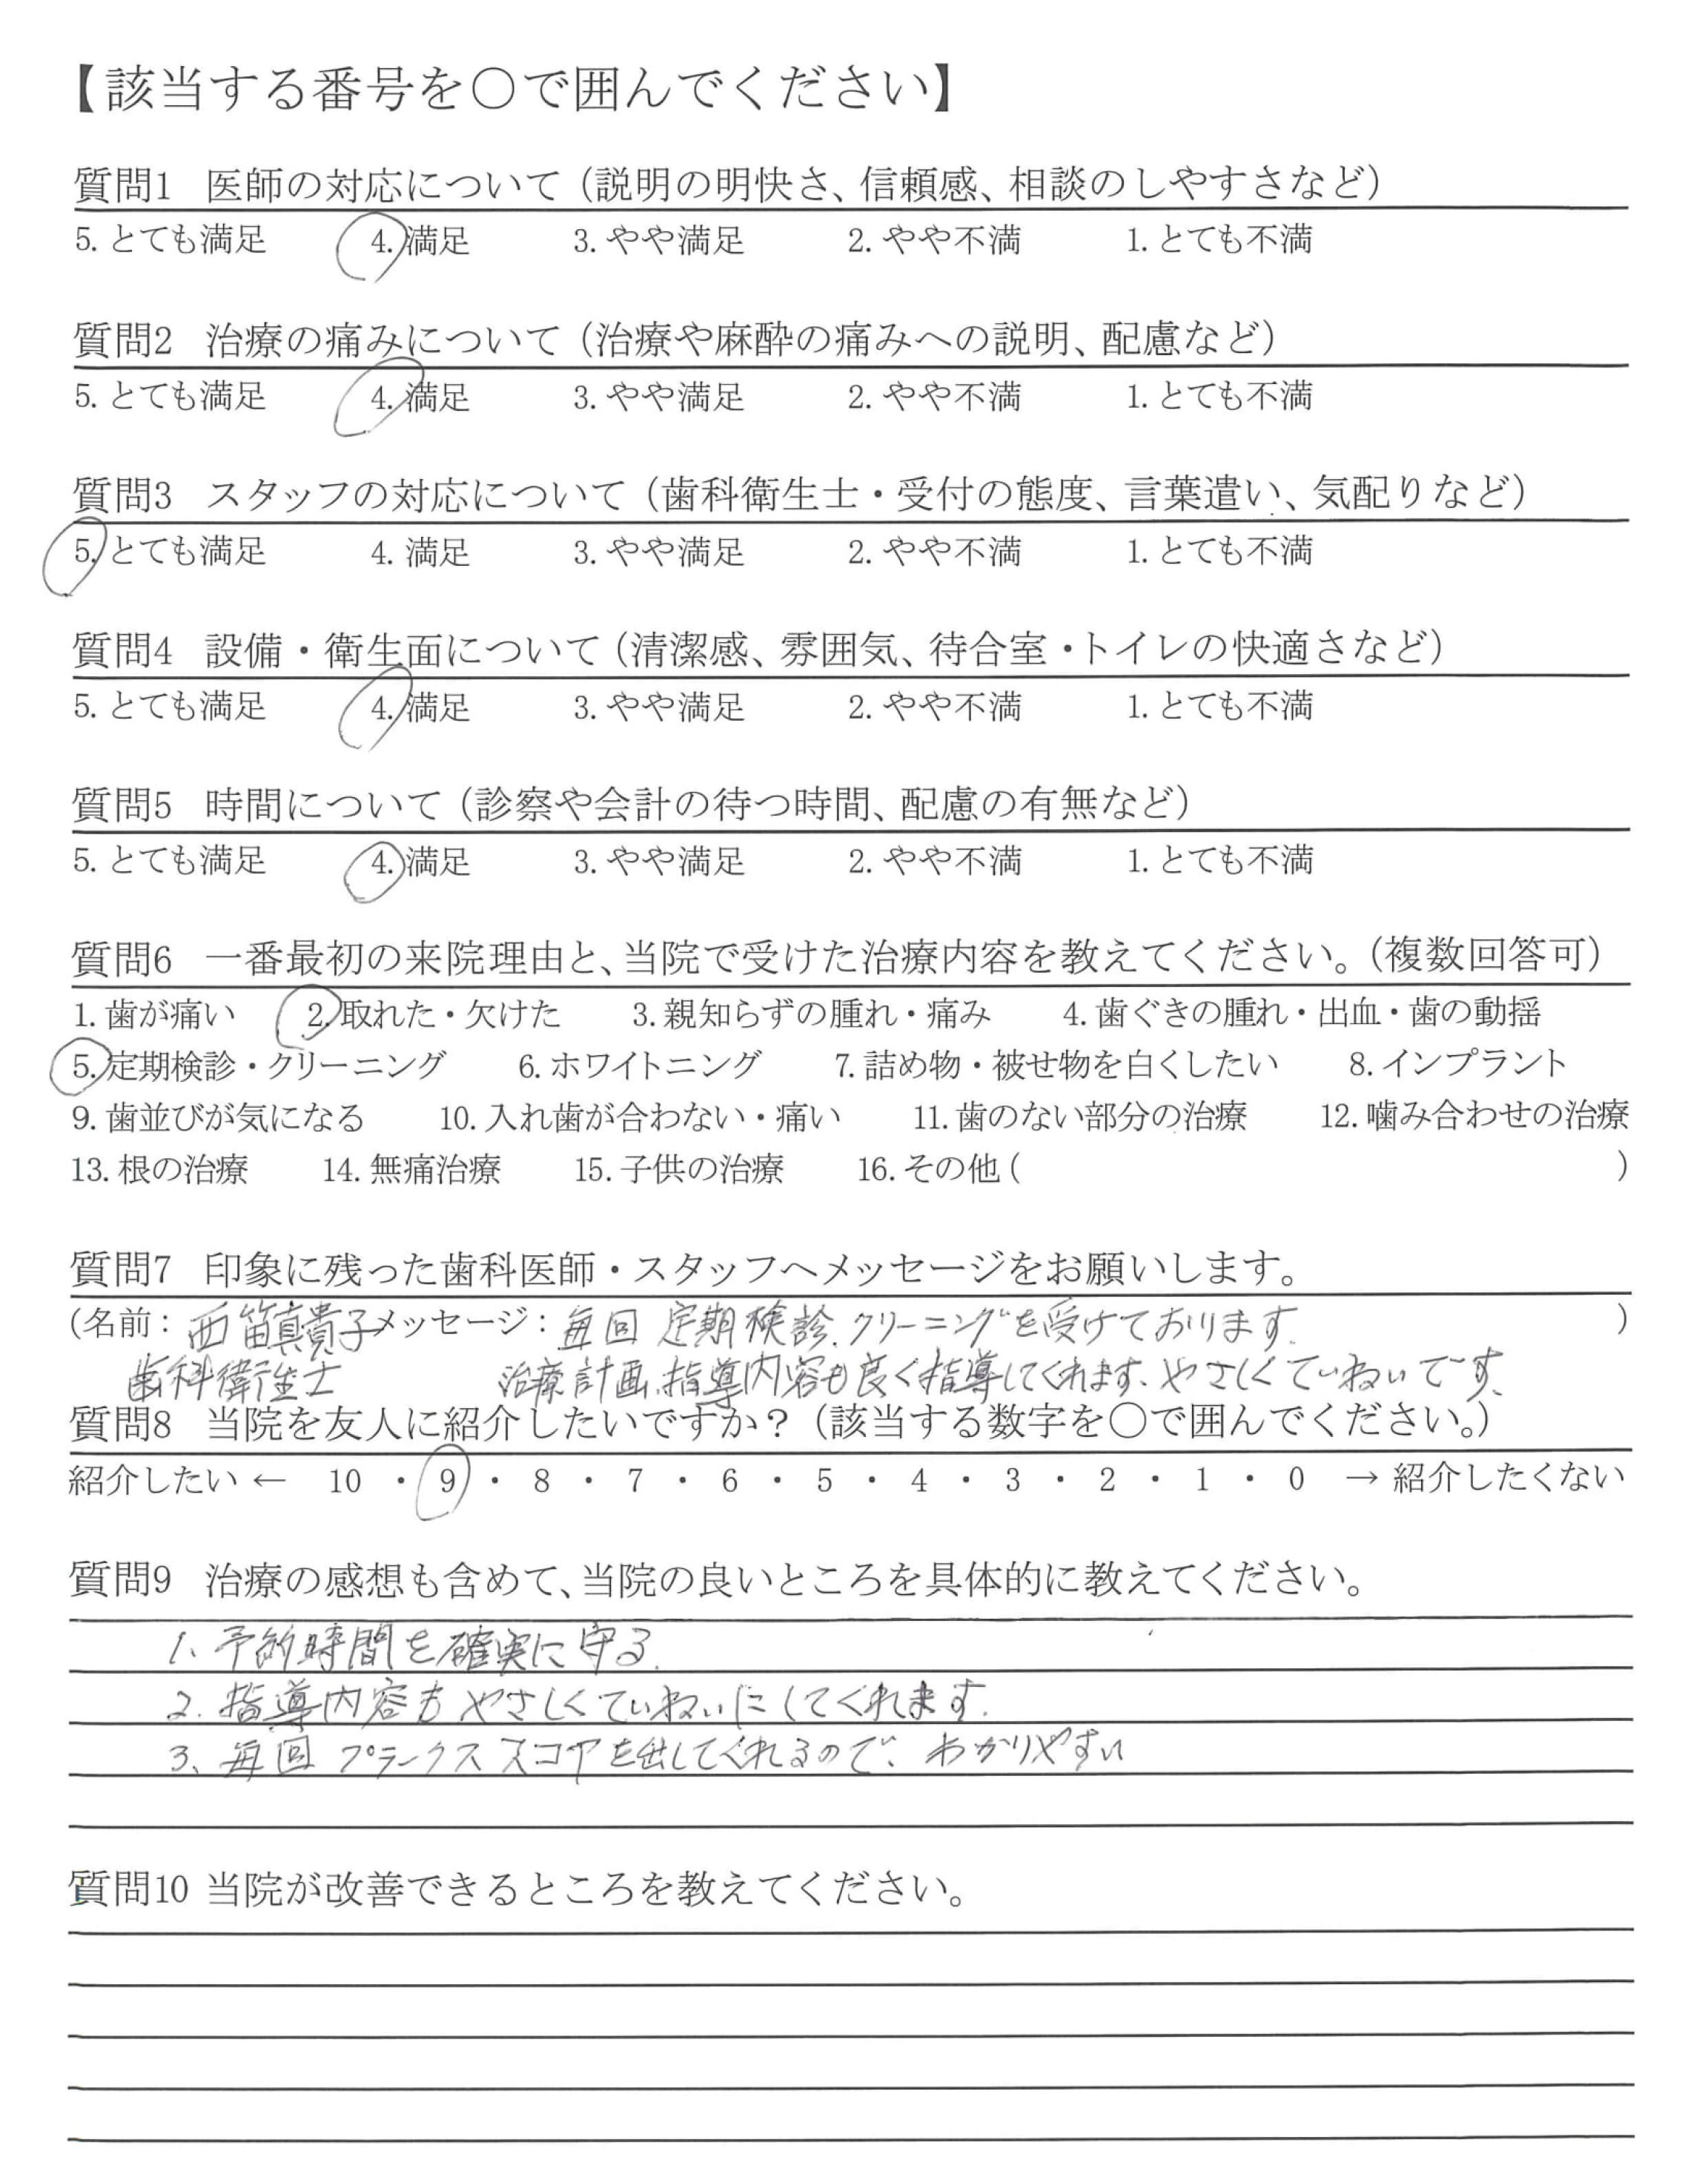 【該当する番号を〇で囲んでください】
質問1 医師の対応について（説明の明快さ、信頼感、相談のしやすさなど）
5. とても満足 4. 満足 3. やや満足 2. やや不満 1. とても不満
質問2 治療の痛みについて（治療や麻酔の痛みへの説明、配慮など）
5. とても満足 4. 満足 3. やや満足 2. やや不満 1. とても不満
質問3 スタッフの対応について（歯科衛生士・受付の態度、言葉遣い、気配りなど）
5. とても満足 4. 満足 3. やや満足 2. やや不満 1. とても不満
質問4 設備・衛生面について（清潔感、雰囲気、待合室・トイレの快適さなど）
5. とても満足 4. 満足 3. やや満足 2. やや不満 1. とても不満
質問5 時間について（診察や会計の待つ時間、配慮の有無など）
5. とても満足 4. 満足 3. やや満足 2. やや不満 1. とても不満
質問6 一番最初の来院理由と、当院で受けた治療内容を教えてください。（複数回答可）
1. 歯が痛い 2. 取れた・欠けた 3. 親知らずの腫れ・痛み 4. 歯ぐきの腫れ・出血・歯の動揺
5. 定期検診・クリーニング 6. ホワイトニング 7. 詰め物・被せ物を白くしたい 8. インプラント
9. 歯並びが気になる 10. 入れ歯が合わない・痛い 11. 歯のない部分の治療 12. 噛み合わせの治療
13. 根の治療 14. 無痛治療 15. 子供の治療 16. その他 ( )
質問7 印象に残った歯科医師・スタッフへメッセージをお願いします。
(名前： 西笛真貴子 メッセージ： 毎回 定期検診、クリーニングを受けております。 )
歯科衛生士 治療計画、指導内容も良く指導してくれます、やさしくていねいです。
質問8 当院を友人に紹介したいですか？（該当する数字を〇で囲んでください。）
紹介したい ← 10 ・ 9 ・ 8 ・ 7 ・ 6 ・ 5 ・ 4 ・ 3 ・ 2 ・ 1 ・ 0 → 紹介したくない
質問9 治療の感想も含めて、当院の良いところを具体的に教えてください。
1、予約時間を確実に守る。
2. 指導内容も やさしくていねいにしてくれます。
3、毎回 プラークス スコアを出してくれるので、わかりやすい
質問10 当院が改善できるところを教えてください。